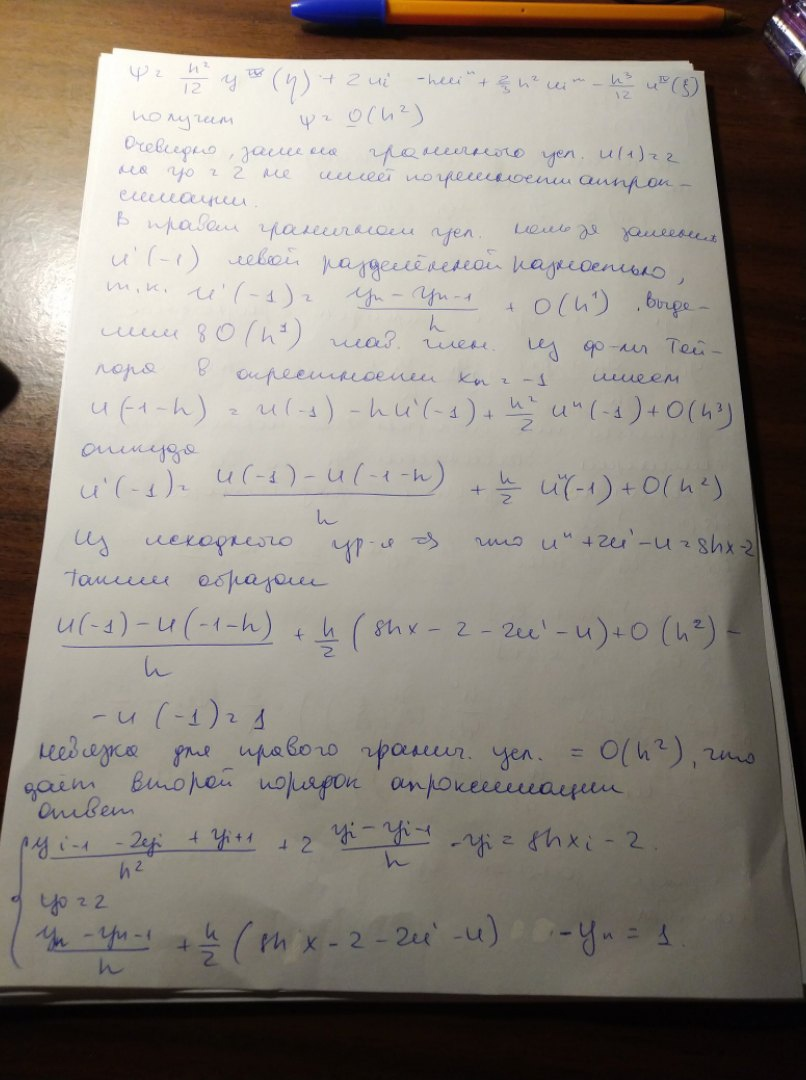 ψ = h²/12 y^IV (η) + 2 ui' - hui'' + 2/3 h² ui''' - h³/12 u^IV (ξ)
получим ψ = O(h²)
Очевидно, замена граничного усл. u(1)=2
на y0 = 2 не имеет погрешности аппрок-
симации.
В правом граничном усл. нельзя заменить
u'(-1) левой разделённой разностью,
т.к. u'(-1) = (yn - yn-1)/h + O(h¹). Выде-
лим в O(h¹) глав. член. Из ф-лы Тей-
лора в окрестности xn = -1 имеем
u(-1-h) = u(-1) - hu'(-1) + h²/2 u''(-1) + O(h³)
откуда
u'(-1) = (u(-1) - u(-1-h))/h + h/2 u''(-1) + O(h²)
Из исходного ур-я => что u'' + 2u' - u = 8hx-2
Таким образом
(u(-1) - u(-1-h))/h + h/2 (8hx - 2 - 2u' - u) + O(h²) -
- u(-1) = 1
невязка для правого гранич. усл. = O(h²), что
даёт второй порядок апроксимации
ответ
(yi-1 - 2yi + yi+1)/h² + 2 (yi - yi-1)/h - yi = 8hxi - 2.
y0 = 2
(yn - yn-1)/h + h/2 (8hx - 2 - 2u' - u) - yn = 1.